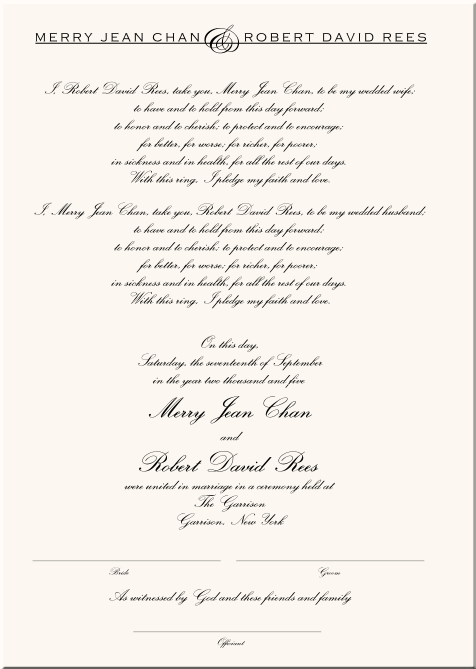 MERRY JEAN CHAN & ROBERT DAVID REES
I, Robert David Rees, take you, Merry Jean Chan, to be my wedded wife;
to have and to hold from this day forward;
to honor and to cherish; to protect and to encourage;
for better, for worse; for richer, for poorer;
in sickness and in health, for all the rest of our days.
With this ring, I pledge my faith and love.
I, Merry Jean Chan, take you, Robert David Rees, to be my wedded husband;
to have and to hold from this day forward;
to honor and to cherish; to protect and to encourage;
for better, for worse; for richer, for poorer;
in sickness and in health, for all the rest of our days.
With this ring, I pledge my faith and love.
On this day,
Saturday, the seventeenth of September
in the year two thousand and five
Merry Jean Chan
and
Robert David Rees
were united in marriage in a ceremony held at
The Garrison
Garrison, New York
Bride Groom
As witnessed by God and these friends and family
Officiant